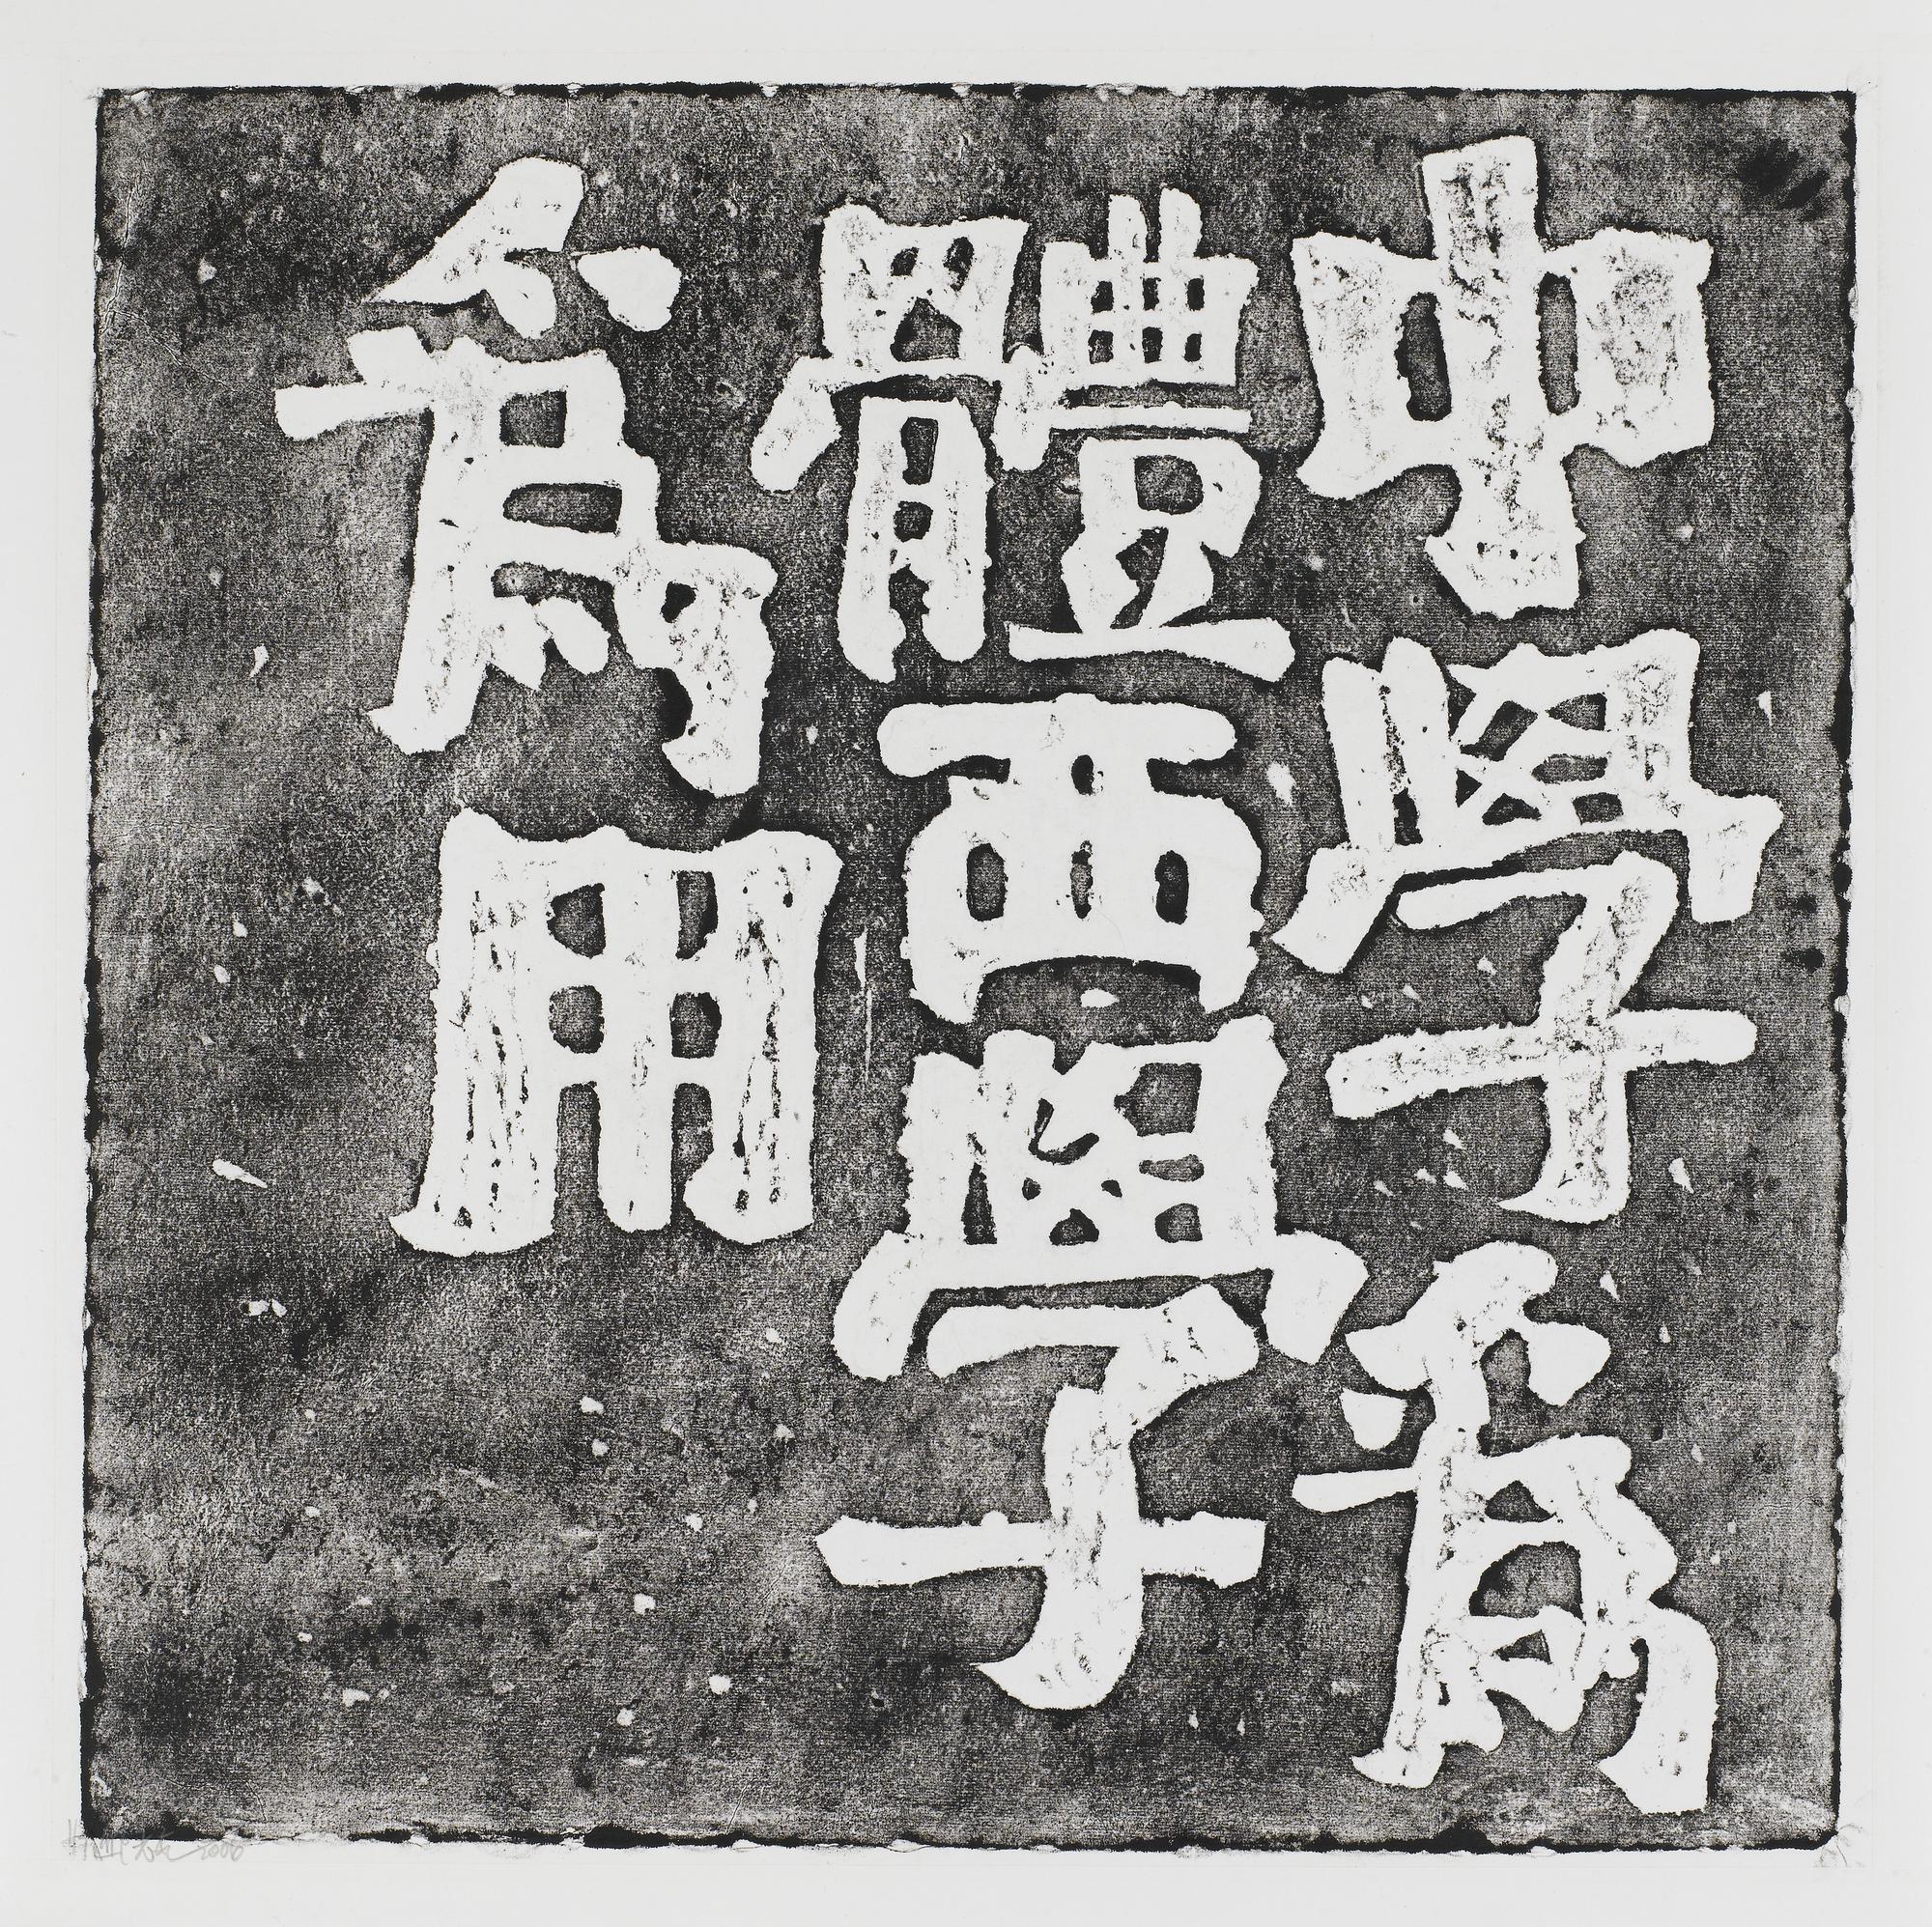 中學爲
體西學
爲用
2006